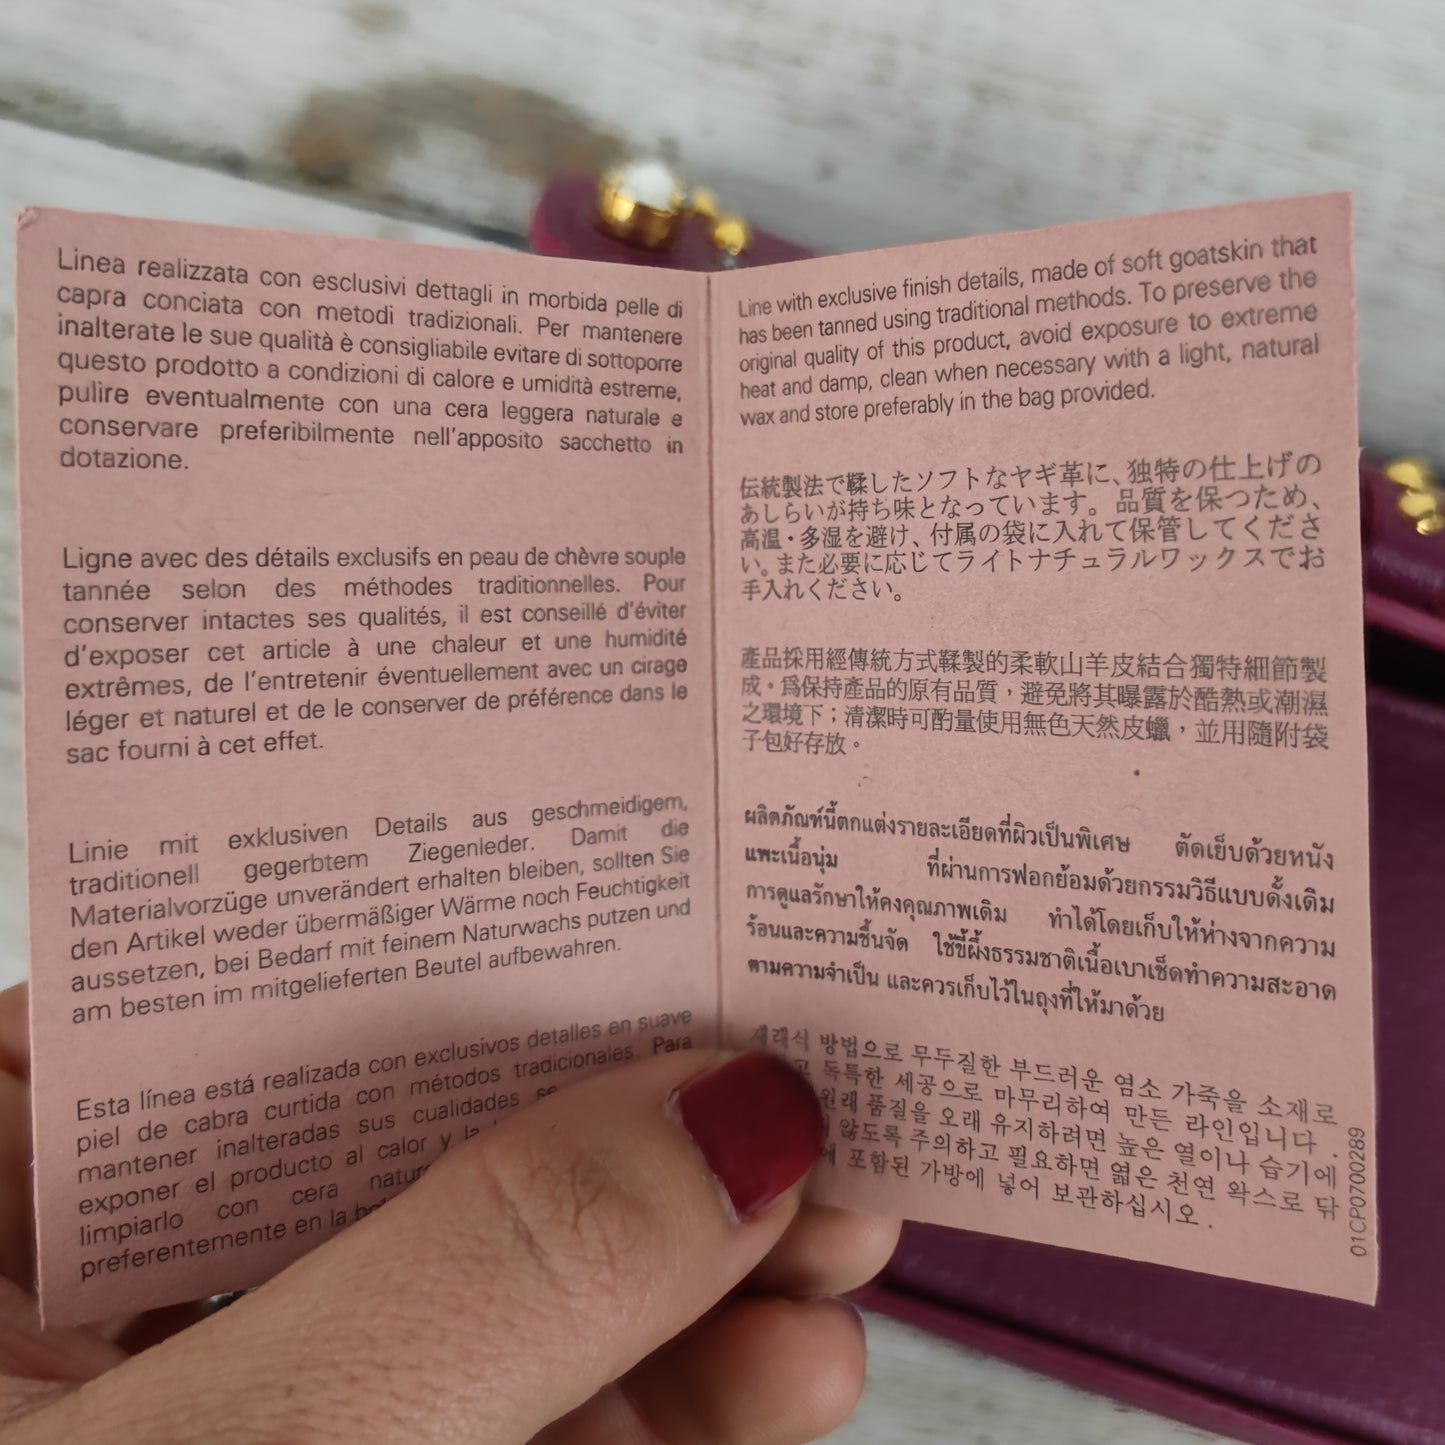 Linea realizzata con esclusivi dettagli in morbida pelle di
capra conciata con metodi tradizionali. Per mantenere
inalterate le sue qualità è consigliabile evitare di sottoporre
questo prodotto a condizioni di calore e umidità estreme,
pulire eventualmente con una cera leggera naturale e
conservare preferibilmente nell'apposito sacchetto in
dotazione.
Ligne avec des détails exclusifs en peau de chèvre souple
tannée selon des méthodes traditionnelles. Pour
conserver intactes ses qualités, il est conseillé d'éviter
d'exposer cet article à une chaleur et une humidité
extrêmes, de l'entretenir éventuellement avec un cirage
léger et naturel et de le conserver de préférence dans le
sac fourni à cet effet.
Linie mit exklusiven Details aus geschmeidigem,
traditionell gegerbtem Ziegenleder. Damit die
Materialvorzüge unverändert erhalten bleiben, sollten Sie
den Artikel weder übermäßiger Wärme noch Feuchtigkeit
aussetzen, bei Bedarf mit feinem Naturwachs putzen und
am besten im mitgelieferten Beutel aufbewahren.
Esta línea está realizada con exclusivos detalles en suave
piel de cabra curtida con métodos tradicionales. Para
mantener inalteradas sus cualidades
exponer el producto al calor y
limpiarlo con cera
preferentemente en la
Line with exclusive finish details, made of soft goatskin that
has been tanned using traditional methods. To preserve the
original quality of this product, avoid exposure to extreme
heat and damp, clean when necessary with a light, natural
wax and store preferably in the bag provided.
伝統製法で鞣したソフトなヤギ革に、独特の仕上げの
あしらいが持ち味となっています。品質を保つため、
高温・多湿を避け、付属の袋に入れて保管してくださ
い。また必要に応じてライトナチュラルワックスでお
手入れください。
產品採用經傳統方式鞣製的柔軟山羊皮結合獨特細節製
成。爲保持產品的原有品質，避免將其曝露於酷熱或潮濕
之環境下；清潔時可酌量使用無色天然皮蠟，並用隨附袋
子包好存放。
ผลิตภัณฑ์นี้ตกแต่งรายละเอียดที่ผิวเป็นพิเศษ ตัดเย็บด้วยหนัง
แพะเนื้อนุ่ม ที่ผ่านการฟอกย้อมด้วยกรรมวิธีแบบดั้งเดิม
การดูแลรักษาให้คงคุณภาพเดิม ทำได้โดยเก็บให้ห่างจากความ
ร้อนและความชื้นจัด ใช้ขี้ผึ้งธรรมชาติเนื้อเบาเช็ดทำความสะอาด
ตามความจำเป็น และควรเก็บไว้ในถุงที่ให้มาด้วย
재래식 방법으로 무두질한 부드러운 염소 가죽을 소재로
독특한 세공으로 마무리하여 만든 라인입니다 .
원래 품질을 오래 유지하려면 높은 열이나 습기에
않도록 주의하고 필요하면 엷은 천연 왁스로 닦
포함된 가방에 넣어 보관하십시오 .
01CP0700289